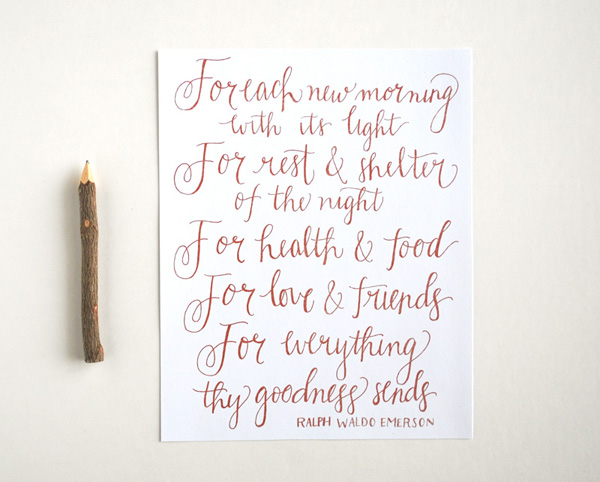 For each new morning
with its light
For rest & shelter
of the night
For health & food
For love & friends
For everything
thy goodness sends
RALPH WALDO EMERSON